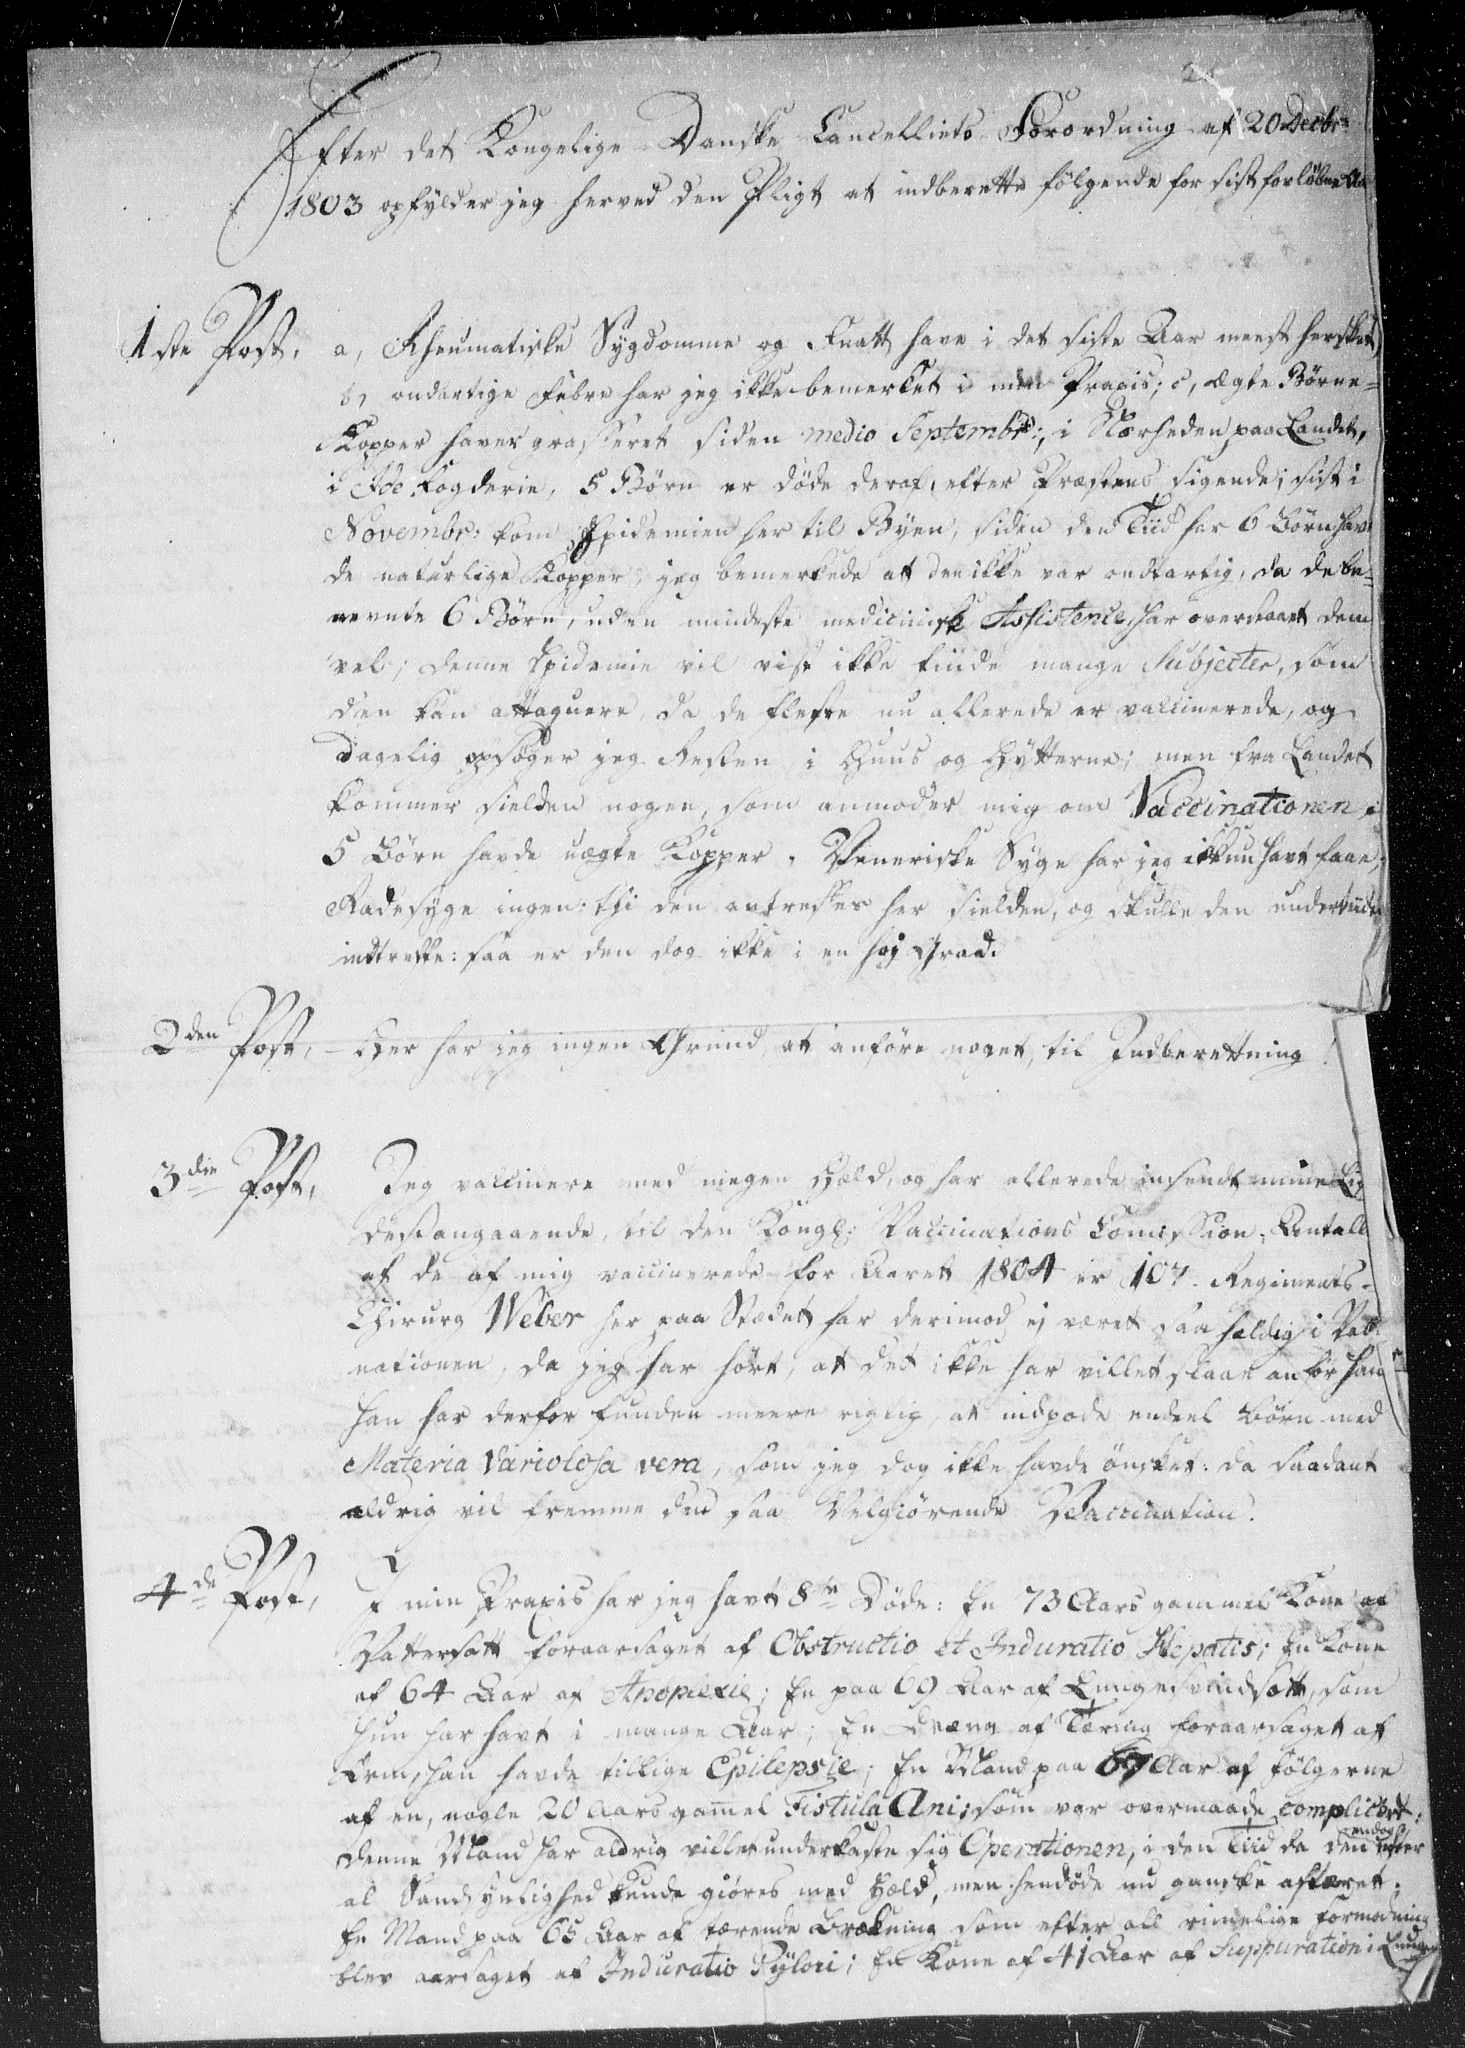 Efter det Kongelige Danske Cancelliets Forordning af 20 Decbr:
1803 opfylder jeg herved den Pligt at indberette følgende for sist forløbne Aar
1ste Post, a, Rheumatiske Sygdomme og Knatt have i det siste Aar meest hersket,
b, ondartige Febre har jeg ikke bemerket i min Praxis; c, ægte Børne=
Kopper haver grasseret siden medio Septembr:, i Nærheden paa Landet,
i Ide Fogderie, 5 Børn er døde deraf, efter Præstens sigende; sist i
Novembr: kom Epidemien her til Byen, siden den Tiid har 6 Børn hav
de naturlige Kopper, jeg bemerkede at den ikke var ondartig, da de be=
nevnte 6 Børn, uden mindste medicinisk Assistence, har overstaaet dem
vel; denne Epidemie vil vist ikke finde mange Subjecter, som
den kan attaquere, da de fleste nu allerede er vaccinerede, og
dagelig opsøger jeg Resten i Huus og Hytterne; men fra Landet
kommer sielden nogen, som anmoder mig om Vaccinationen;
5 Børn havde uægte Kopper. Veneriske Syge har jeg ikkun havt faae,
Radesyge ingen: thi den antreffes her sielden, og skulle den undertiden
indtreffe: saa er den dog ikke i en høj Grad.
2den Post, - Her har jeg ingen Grund, at anføre noget, til Indberettning!
3die Post, Jeg vaccinere med megen Held, og har allerede insendt mine
desangaaende, til den Kongl: Vaccinations Comission, Antall
af de af mig vaccinerede for Aaret 1804 er 107. Regiments-
Chirurg Weber her paa Stædet har derimod ej været saa heldig i Vacci
nationen, da jeg har hørt, at det ikke har villet slaae an for ham
han har derfor funden meere rigtig, at indpode endeel Børn med
Materia Variolosa vera, som jeg dog ikke havde ønsket: da saadant
aldrig vil fremme den saa Velgiørende Vaccination.
4de Post, I min Praxis har jeg havt 8te Døde: En 73 Aars gammel Kone af
Vattersott foraarsaget af Obstructio et Induratio Hepatis; En Kone
af 64 Aar af Apoplexie; En paa 69 Aar af Lungesvindsott, som
hun har havt i mange Aar; En Dreng af Tæring foraarsaget af
Orm, han havde tillige Epilepsie; En Mand paa 67 Aar af Følgerne
af en, nogle 20 Aars gamel Fistula Ani; som var overmaade complicert:
denne Mand har aldrig villet underkaste sig Operationen, i den Tiid da den endog efter
al Sandsynlighed kunde giøres med Held, men hendøde nu ganske aftæret.
En Mand paa 65 Aar af tærende Brækning som efter all rimelige Formodning
blev aarsaget af Induratio Pylori; En Kone af 41 Aar af Suppuration i Lungen